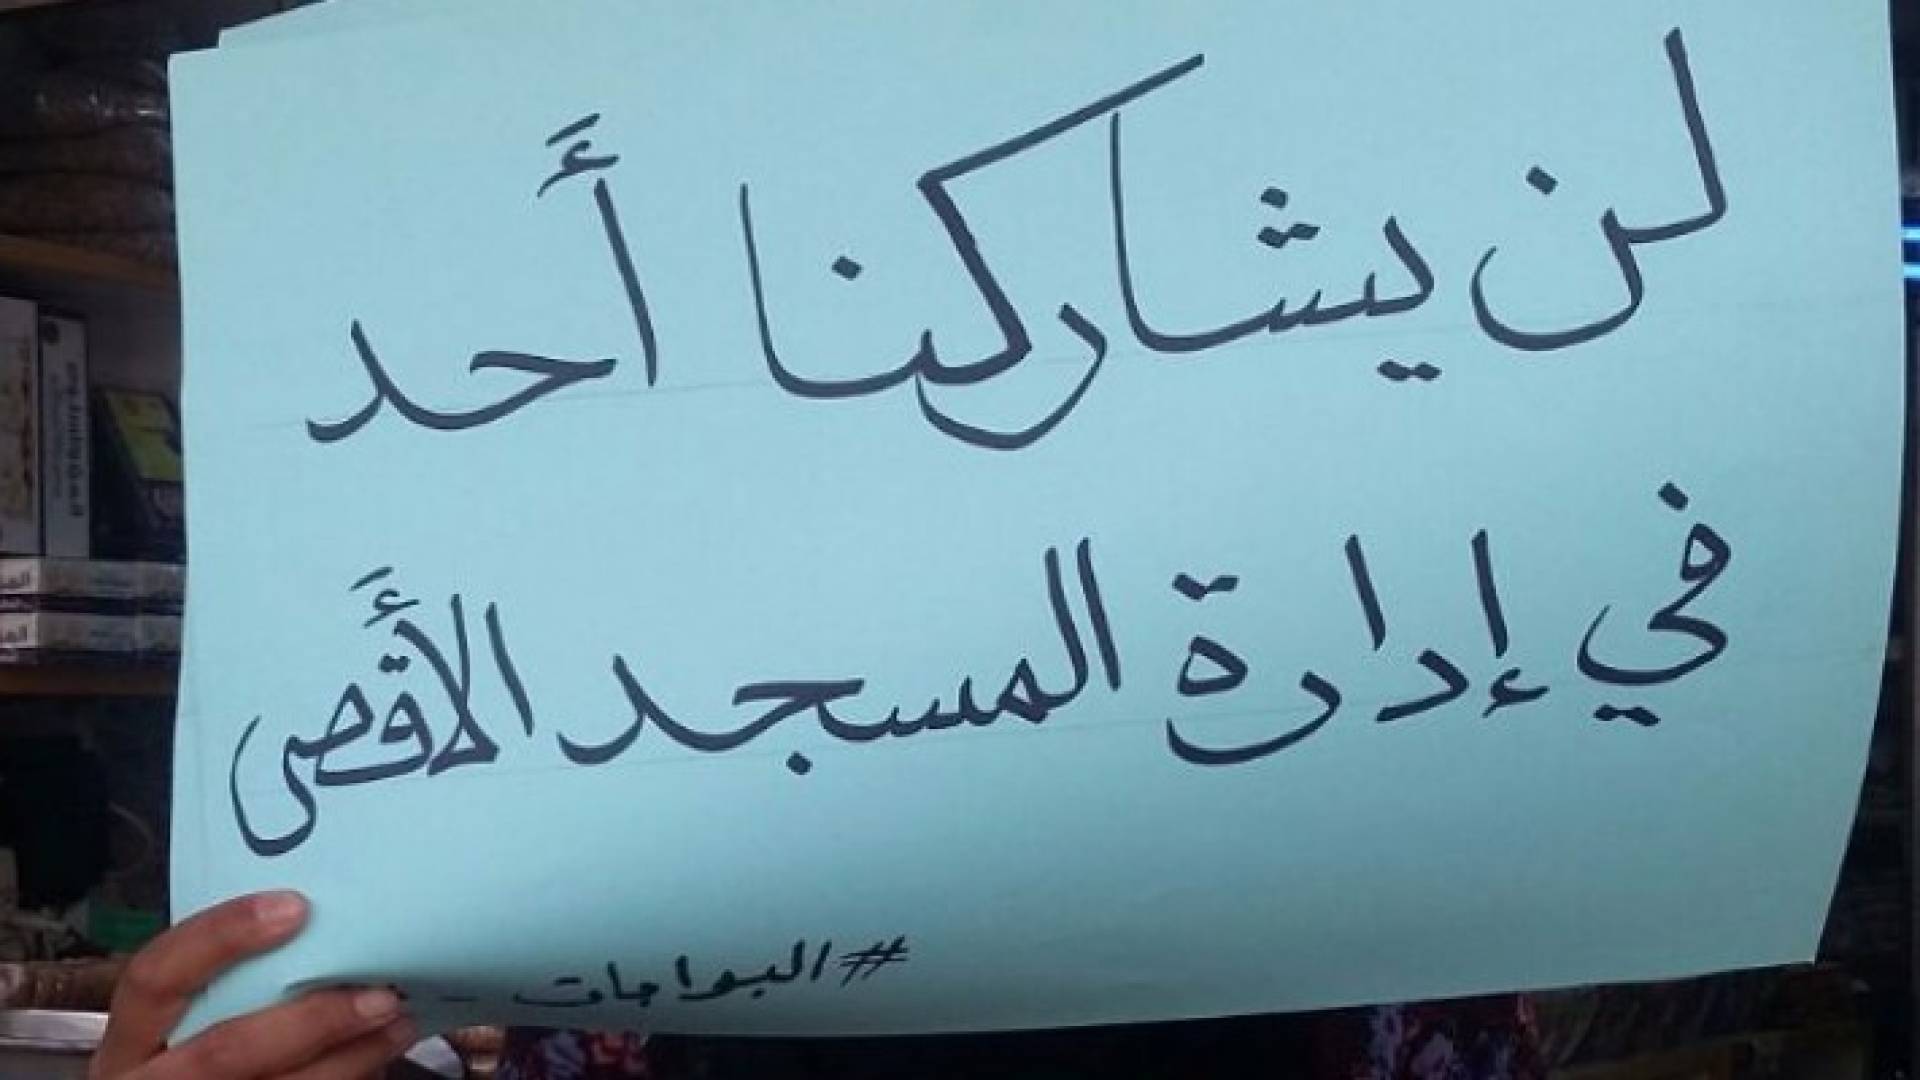 لن يشاركنا أَحد
في إدارة المسجد الأَقصى
#البوابات